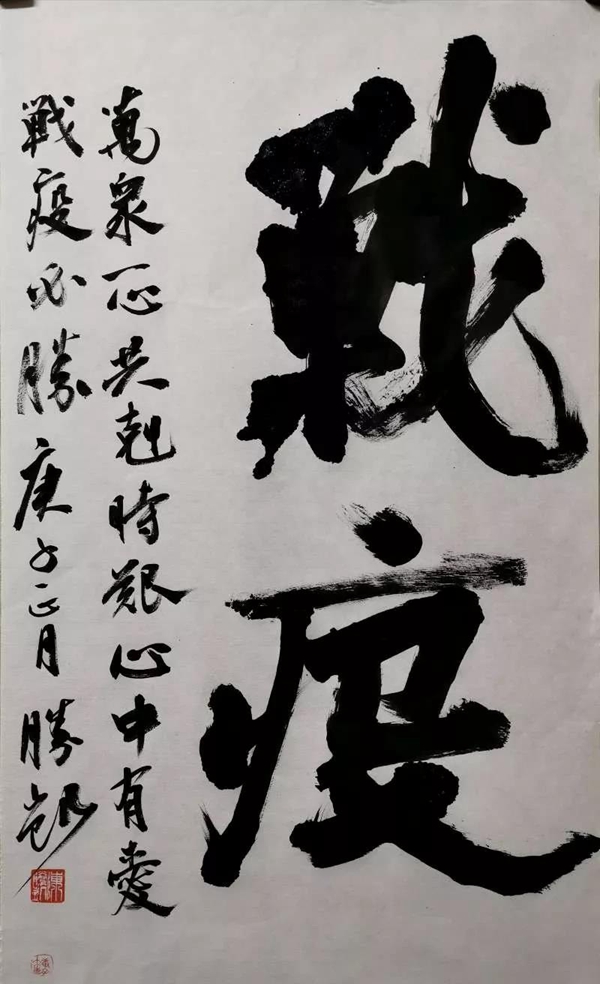 戰疫
萬衆一心共尅時艱心中有愛
戰疫必勝庚子正月勝凱